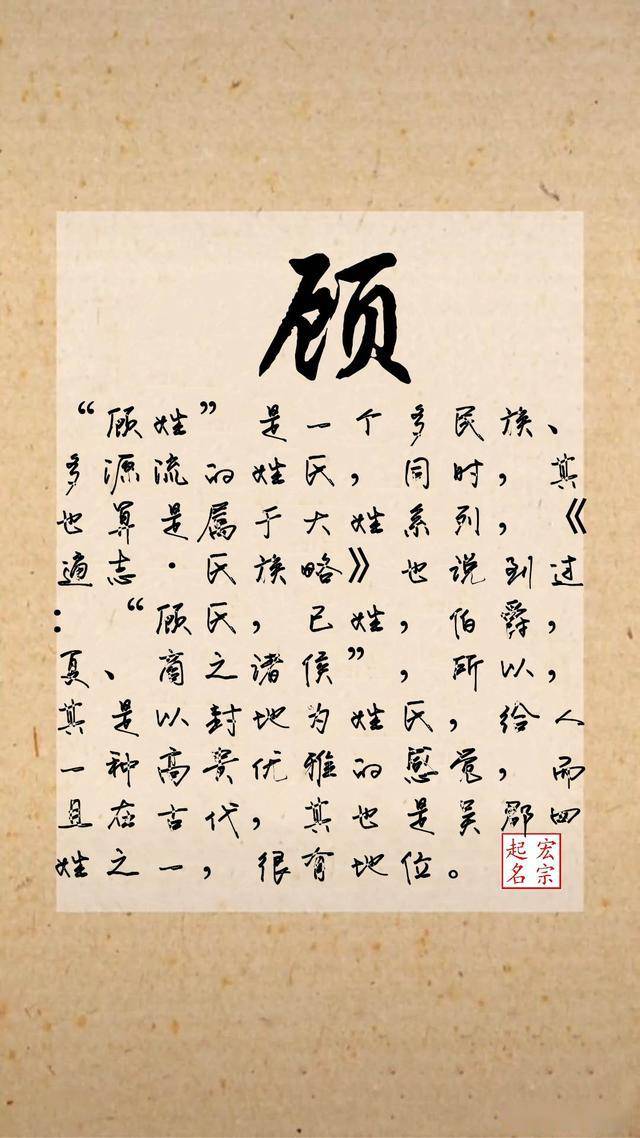 顾
“顾姓”是一个多民族、
多源流的姓氏，同时，其
也算是属于大姓系列，《
通志·氏族略》也说到过
：“顾氏，已姓，伯爵，
夏、商之诸侯”，所以，
其是以封地为姓氏，给人
一种高贵优雅的感觉，而
且在古代，其也是吴郡四
姓之一，很有地位。
宏宗
起名